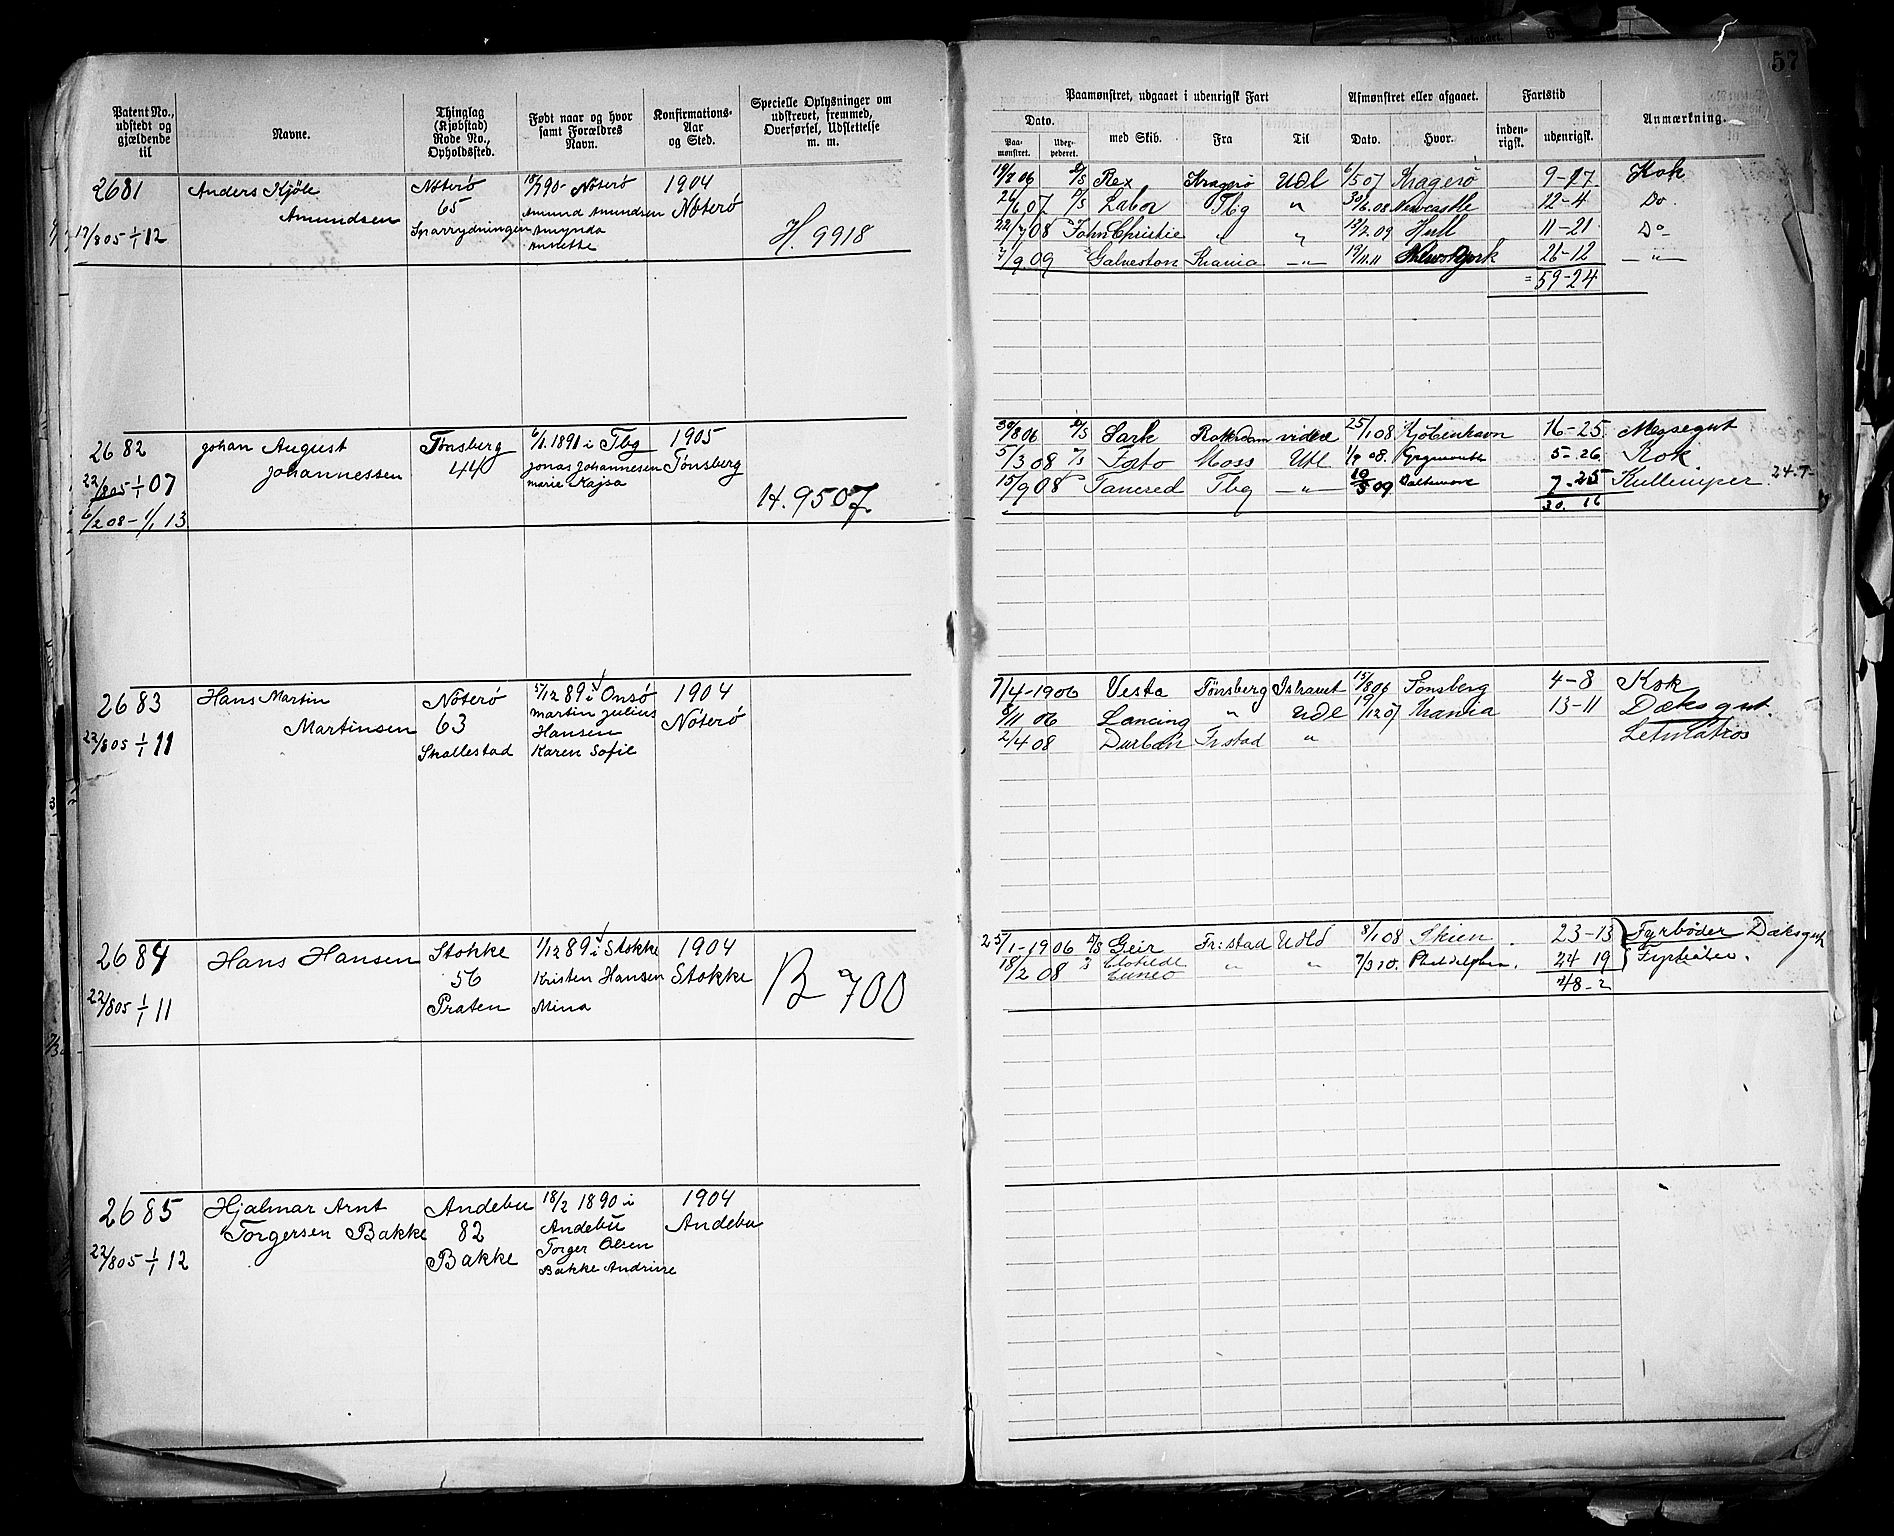 57
Patent No., udstedt og gjældende til
Navne.
Thinglag (Kjøbstad) Rode No., Opholdssted.
Født naar og hvor samt Forældres Navn.
Konfirmations-Aar og Sted.
Specielle Oplysninger om udskrevet, fremmed, Overførsel, Udslettelse m. m.
Paamønstret, udgaaet i udenrigsk Fart
Afmønstret eller afgaaet.
Fartstid
Anmærkning.
Dato.
Paamønstret.
Udexpederet.
med Skib.
Fra
Til
Dato.
Hvor.
indenrigsk.
udenrigsk.
2681 Anders Kjøle Nøterö 18/7 90 - Nöterö 1904
Amundsen 65 Amund Amundsen Nøterö
17/8 05 1/1 12
Annette
H. 9918
19/8 06 D/S Rex Kragerø Udl 6/5 07 Kragerö 9-17 Kok
21/6 07 D/S Labor Tbg " 30/6 08 Newcastle 12-4 Do
22/7 08 John Christie " " 13/2 09 Hull 11-21 Do
7/9 09 Galveston Krania -"- 19/11 11 26-12 -"-
= 59-24
2682 Johan August Tønsberg 6/1 1891 i Tbg 1905
Johannessen 44 Jonas Johannesen Tønsberg
22/8 05 1/1 07 Marie Kajsa
6/2 08 - 1/1 13
H. 9507
30/8 06 D/S Sark Rotterdam videre 25/1 08 Kjøbenhavn 16-25 Messegut
5/3 08 Fato Moss Utl 1/9 08. 5-26 Kok
15/9 08 Tancred Tbg -"- 19/5 09 Baltimore 7-25 Kullemper 24-7-
30. 16
2683 Hans Martin Nöterö 5/12 89 i Onsö 1904
Martinsen 63 Martin Julius Nöterö
22/8 05 1/1 11 Hansen
Skallestad Karen Sofie
7/4-1906 Vesta Tønsberg Ishavet 15/8 06 Tønsberg 4-8 Kok
8/11 06 Lancing " Udl 19/12 07 Krania 13-11 Dæksgut.
2/4 08 Durban Fr.stad " Letmatros
2684 Hans Hansen Stokke 1/12 89 i Stokke 1904
56 Kristen Hansen Stokke
22/8 05 1/1 11 Præten Mina
B 700
25/1-1906 D/S Geir Fr:stad Udld 8/1 08 Skien 23-13 Fyrbøder Dæksgut
18/2 08 Clotilde Cuneo " " 7/3 10. 24 19 Fyrbøder.
48-2
2685 Hjalmar Arnt Andebu 18/2 1890 i 1904
Torgersen Bakke 82 Andebu Andebu
22/8 05 1/1 12 Bakke Torger Olsen
Bakke Andrine